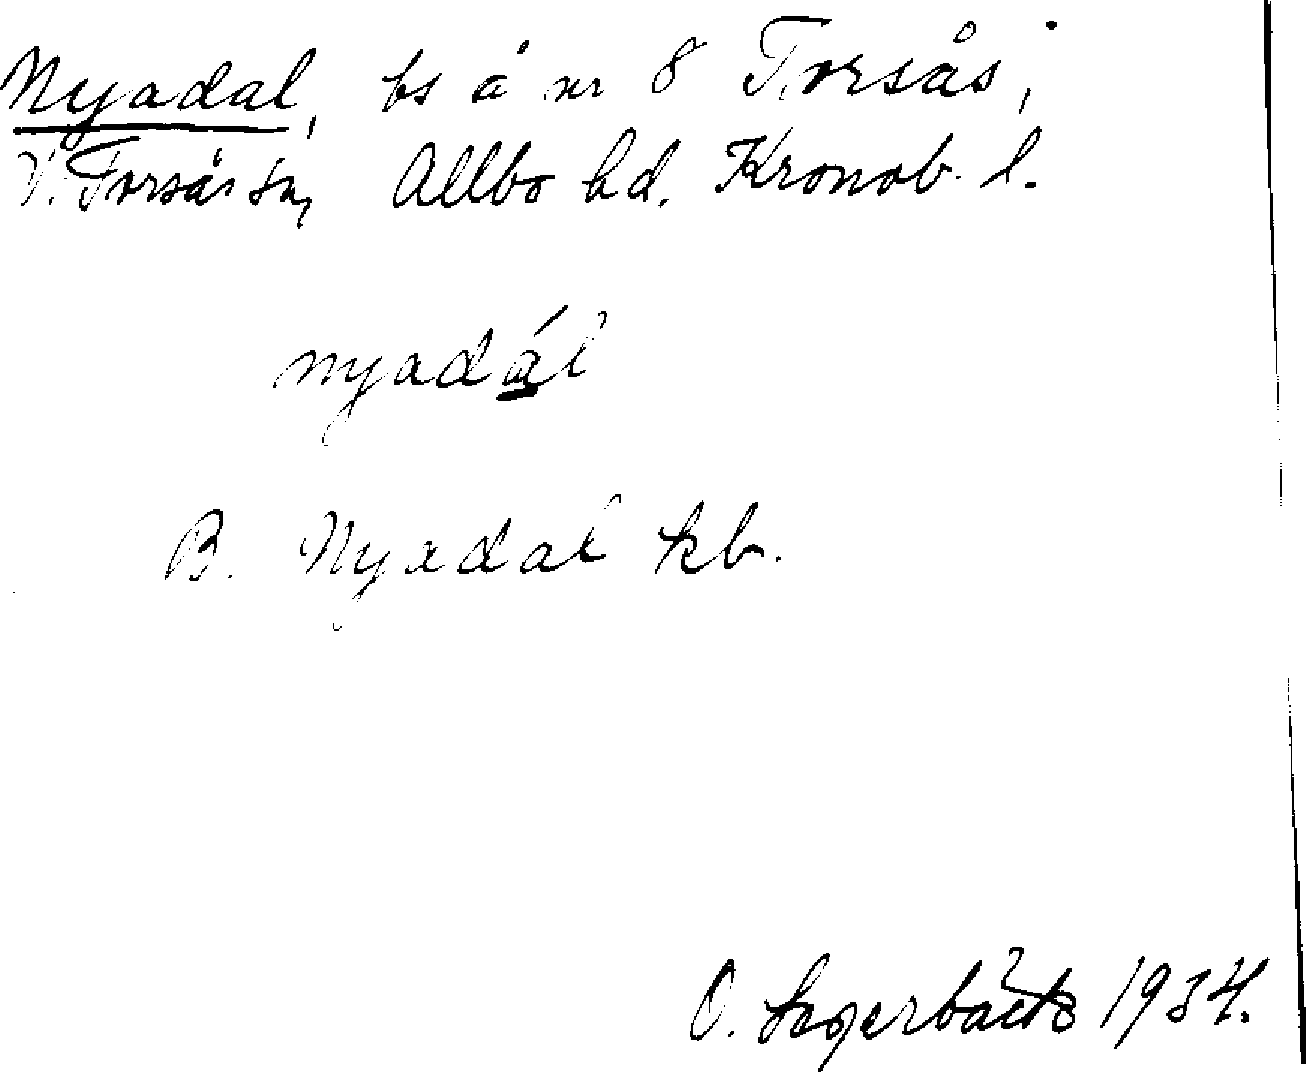 Nyadal, bs å nr 8 Torsås,
V. Torsås sn, Allbo hd. Kronob. l.
nyadál
B. Nyadal kb.
O. 1934.